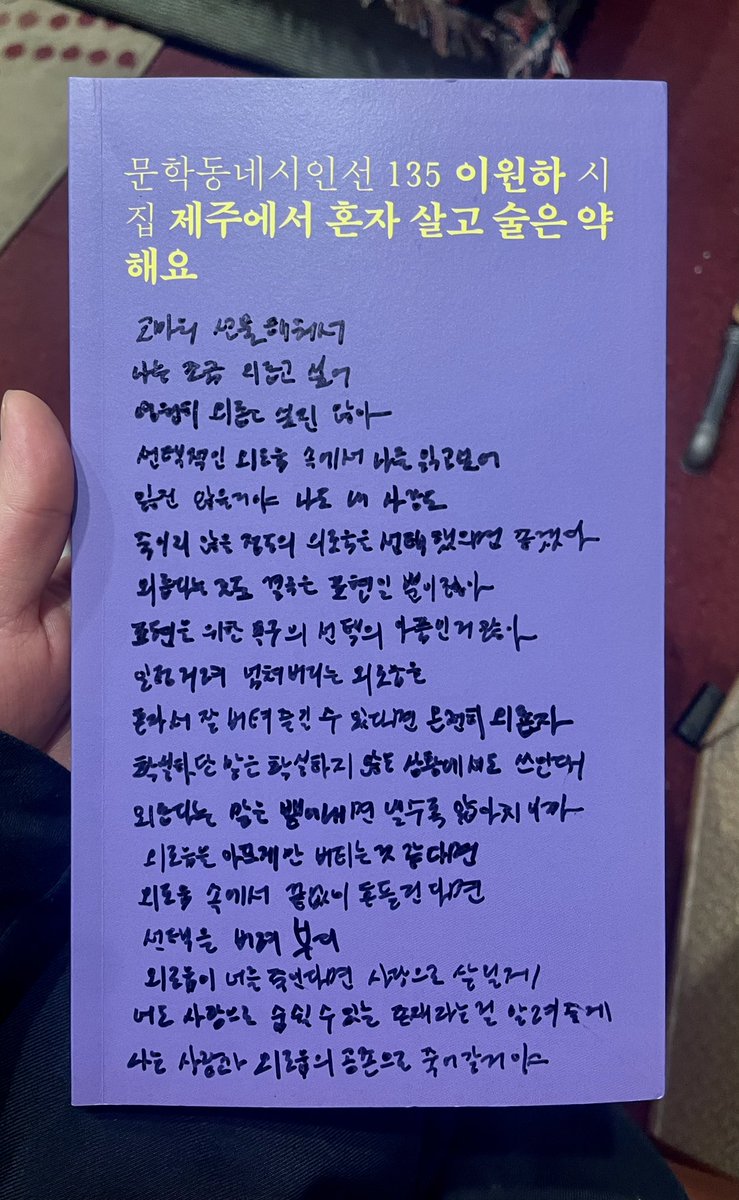 문학동네시인선 135 이원하 시
집 제주에서 혼자 살고 술은 약
해요
선물해줘서
나는 조금 외롭고 싶어
영원히 싶진 않아
선택적인 외로움 속에서 나를 읽고싶어
잃진 않을거야 나도 내 사랑도
죽이지 않은 정도의 외로움은 선택했으면 좋겠어
외롭다는 것도 결국은 표현일 뿐이잖아
표현을 위한 선택의 아픔인거잖아
넘쳐버리는 외로움을
혼자서 잘 버텨 즐길 수 있다면 온전히 외롭자
확실하단 말은 확실하지 않은 상황에서도 쓰인대
외롭다는 말은 뱉어내면 낼수록 많아지니까
외로움을 아프게만 버티는 것 같다면
외로움 속에서 끝없이 흔들린다면
선택을 버려 보지
외로움이 너를 죽인다면 사랑으로 살릴게
너도 사랑으로 숨쉴 수 있는 존재라는걸 알려줄게
나는 사랑과 외로움의 공존으로 죽어갈거야